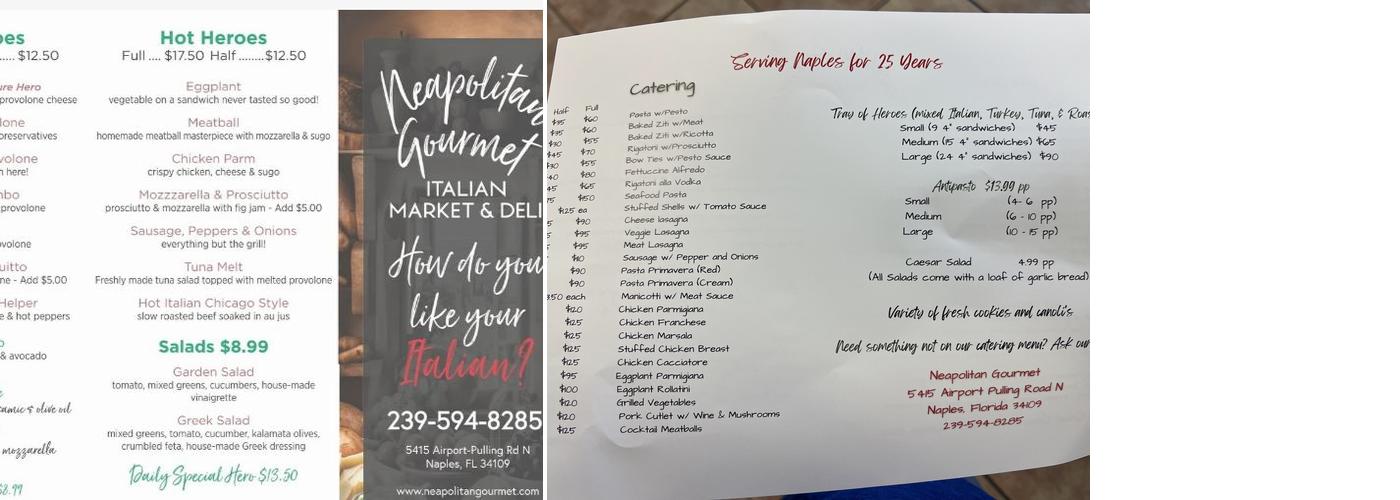 ..... $12.50
ure Hero
provolone cheese
provolone
& avocado
mozzarella
$8.99
Hot Heroes
Full .... $17.50 Half ........$12.50
Eggplant
vegetable on a sandwich never tasted so good!
Meatball
homemade meatball masterpiece with mozzarella & sugo
Chicken Parm
crispy chicken, cheese & sugo
Mozzzarella & Prosciutto
prosciutto & mozzarella with fig jam - Add $5.00
Sausage, Peppers & Onions
everything but the grill!
Tuna Melt
Freshly made tuna salad topped with melted provolone
Hot Italian Chicago Style
slow roasted beef soaked in au jus
Salads $8.99
Garden Salad
tomato, mixed greens, cucumbers, house-made
vinaigrette
Greek Salad
mixed greens, tomato, cucumber, kalamata olives,
crumbled feta, house-made Greek dressing
Daily Special Hero $13.50
Neapolitan
Gourmet
ITALIAN
MARKET & DELI
How do you
like your
Italian?
239-594-8285
5415 Airport-Pulling Rd N
Naples, FL 34109
www.neapolitangourmet.com
Serving Naples for 25 Years
Catering
Half Full
$60 Pasta w/Pesto
$60 Baked Ziti w/Meat
$55 Baked Ziti w/Ricotta
$70 Rigatoni w/Prosciutto
$55 Bow Ties w/Pesto Sauce
$80 Fettuccine Alfredo
$65 Rigatoni alla Vodka
$150 Seafood Pasta
$1.25 ea Stuffed Shells w/ Tomato Sauce
$90 Cheese lasagna
$95 Veggie Lasagna
$95 Meat Lasagna
$110 Sausage w/ Pepper and Onions
$90 Pasta Primavera (Red)
$90 Pasta Primavera (Cream)
3.50 each Manicotti w/ Meat Sauce
$120 Chicken Parmigiana
$125 Chicken Franchese
$125 Chicken Marsala
$125 Stuffed Chicken Breast
$125 Chicken Cacciatore
$95 Eggplant Parmigiana
$100 Eggplant Rollatini
$120 Grilled Vegetables
$120 Pork Cutlet w/ Wine & Mushrooms
$125 Cocktail Meatballs
Tray of Heroes (mixed Italian, Turkey, Tuna, &
Small (9 4" sandwiches) $45
Medium (15 4" sandwiches) $65
Large (24 4" sandwiches) $90
Antipasto $13.99 pp
Small (4- 6 pp)
Medium (6 - 10 pp)
Large (10 - 15 pp)
Caesar Salad 4.99 pp
(All Salads come with a loaf of garlic bread)
Variety of fresh cookies and canoli's
Need something not on our catering menu? Ask our
Neapolitan Gourmet
5415 Airport Pulling Road N
Naples, Florida 34109
239-594-8285